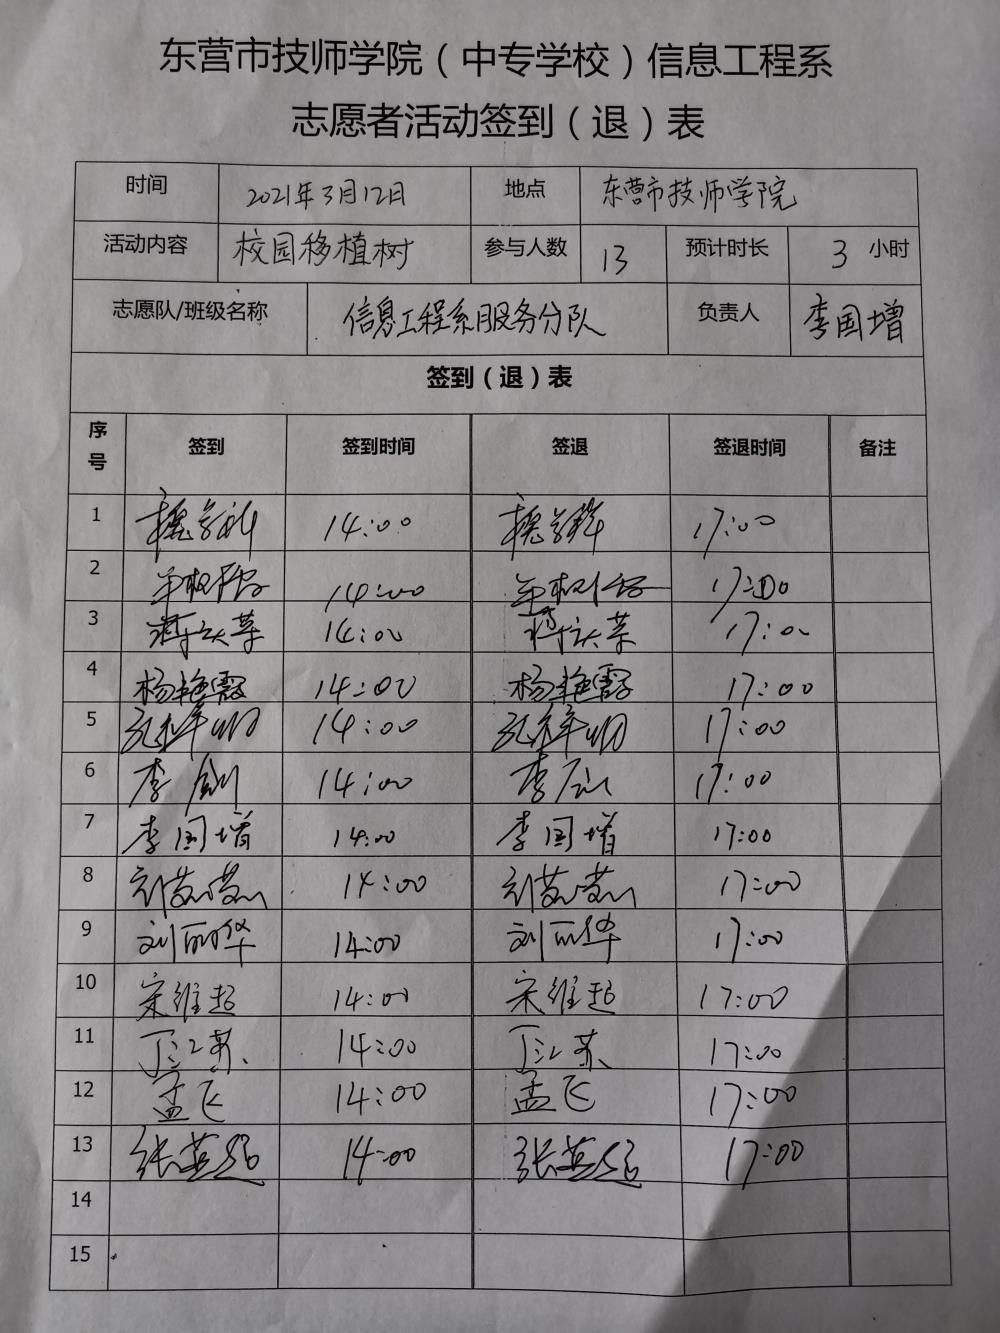 东营市技师学院（中专学校）信息工程系
志愿者活动签到（退）表
时间 2021年3月12日 地点 东营市技师学院
活动内容 校园移植树 参与人数 13 预计时长 3 小时
志愿队/班级名称 信息工程系服务分队 负责人 李国增
签到（退）表
序号 签到 签到时间 签退 签退时间 备注
1 14:00 17:00
2 14:00 17:00
3 14:00 17:00
4 杨艳霞 14:00 杨艳霞 17:00
5 14:00 17:00
6 李 14:00 李 17:00
7 李国增 14:00 李国增 17:00
8 14:00 17:00
9 刘丽华 14:00 刘丽华 17:00
10 宋维起 14:00 宋维起 17:00
11 丁江苏 14:00 丁江苏 17:00
12 孟飞 14:00 孟飞 17:00
13 张英超 14:00 张英超 17:00
14
15